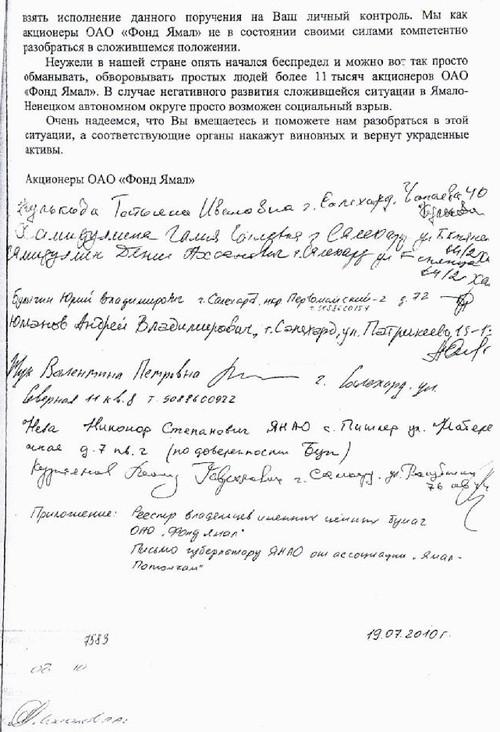 взять исполнение данного поручения на Ваш личный контроль. Мы как
акционеры ОАО «Фонд Ямал» не в состоянии своими силами компетентно
разобраться в сложившемся положении.
Неужели в нашей стране опять начался беспредел и можно вот так просто
обманывать, обворовывать простых людей более 11 тысяч акционеров ОАО
«Фонд Ямал». В случае негативного развития сложившейся ситуации в Ямало-
Ненецком автономном округе просто возможен социальный взрыв.
Очень надеемся, что Вы вмешаетесь и поможете нам разобраться в этой
ситуации, а соответствующие органы накажут виновных и вернут украденные
активы.
Акционеры ОАО «Фонд Ямал»
Татьяна Ивановна г. Салехард. Чапаева 40
Хамидулина Галия г. Салехард ул.
Хамидулин Денис г. Салехард ул. 64/2
Юрий Владимирович г. Салехард, пер Первомайский-2 д. 72
Юманов Андрей Владимирович, г. Салехард, ул. Патрикеева, 15-1
Валентина Петровна г. Салехард. ул.
Северная 11 кв. 8 т. 5088600922
Никонор Степанович ЯНАО ул. Набереж
ная д. 7 кв. 2 (по доверенности)
г. Салехард. ул. Республики
76
Приложение: Реестр владельцев именных ценных бумаг
ОАО „Фонд Ямал"
Письмо губернатору ЯНАО от ассоциации „Ямал-
Потомкам"
7589 19.07.2010г.